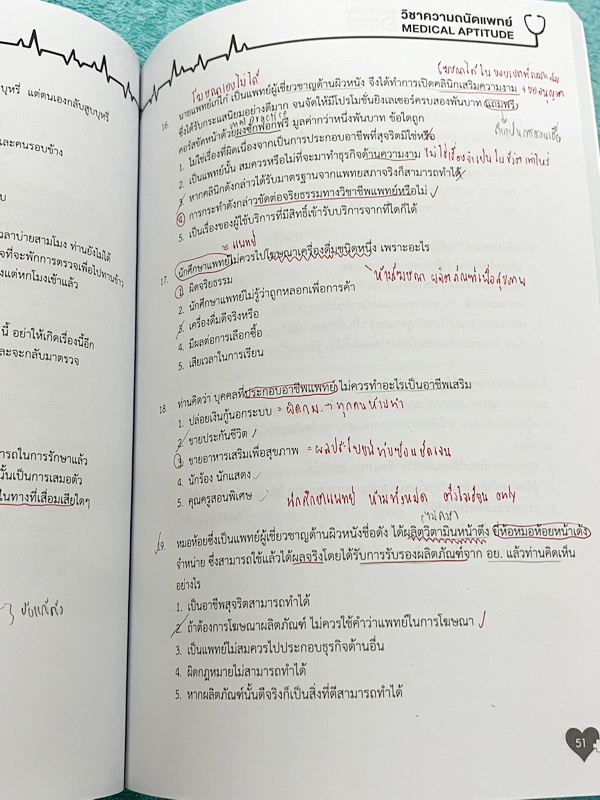 บุหรี่ แต่ตนเองกลับสูบบุหรี่
และคนรอบข้าง
เวลาบ่ายสามโมง ท่านยังไม่ได้
จที่จะพักการตรวจเพื่อไปทานข้าว
งแต่หกโมงเช้าแล้ว
นี้ อย่าให้เกิดเรื่องนี้อีก
และจะกลับมาตรวจ
ารถในการรักษาแล้ว
นั้นเป็นการเสมอตัว
ในทางที่เสื่อมเสียใดๆ
วิชาความถนัดแพทย์
MEDICAL APTITUDE
โฆษณาเองไม่ได้
16. นายแพทย์เก๋ไก๋ เป็นแพทย์ผู้เชี่ยวชาญด้านผิวหนัง จึงได้ทำการเปิดคลินิกเสริมความงาม
ซึ่งได้รับกระแสนิยมอย่างดีมาก จนจัดให้มีโปรโมชั่นยิงเลเซอร์ครบสองพันบาท แถมฟรี
คอร์สขัดหน้าด้วยผงซักฟอกฟรี มูลค่ากว่าหนึ่งพันบาท ข้อใดถูก
1. ไม่ใช่เรื่องที่ผิดเนื่องจากเป็นการประกอบอาชีพที่สุจริตมิใช่หรือ
2. เป็นแพทย์นั้น สมควรหรือไม่ที่จะมาทำธุรกิจด้านความงาม
3. หากคลินิกดังกล่าวได้รับมาตรฐานจากแพทยสภาจริงก็สามารถทำได้
4. การกระทำดังกล่าวขัดต่อจริยธรรมทางวิชาชีพแพทย์หรือไม่
5. เป็นเรื่องของผู้ใช้บริการที่มีสิทธิ์เข้ารับบริการจากที่ใดก็ได้
แพทย์
17. นักศึกษาแพทย์ไม่ควรไปโฆษณาเครื่องดื่มชนิดหนึ่ง เพราะอะไร
1. ผิดจริยธรรม
ห้ามโฆษณา ผลิตภัณฑ์เพื่อสุขภาพ
2. นักศึกษาแพทย์ไม่รู้ว่าถูกหลอกเพื่อการค้า
3. เครื่องดื่มดีจริงหรือ
4. มีผลต่อการเลือกซื้อ
5. เสียเวลาในการเรียน
18. ท่านคิดว่า บุคคลที่ประกอบอาชีพแพทย์ ไม่ควรทำอะไรเป็นอาชีพเสริม
1. ปล่อยเงินกู้นอกระบบ = ผิดกม. → ทุกคนห้ามทำ
2. ขายประกันชีวิต
3. ขายอาหารเสริมเพื่อสุขภาพ = ผลประโยชน์ทับซ้อนชัดเจน
4. นักร้อง นักแสดง
5. คุณครูสอนพิเศษ
นักศึกษาแพทย์ ห้ามทั้งหมด only
19. หมอห้อยซึ่งเป็นแพทย์ผู้เชี่ยวชาญด้านผิวหนังชื่อดัง ได้ผลิตวิตามินหน้าตึง ยี่ห้อหมอห้อยหน้าเด้ง
จำหน่าย ซึ่งสามารถใช้แล้วได้ผลจริงโดยได้รับการรับรองผลิตภัณฑ์จาก อย. แล้วท่านคิดเห็น
อย่างไร
1. เป็นอาชีพสุจริตสามารถทำได้
2. ถ้าต้องการโฆษณาผลิตภัณฑ์ ไม่ควรใช้คำว่าแพทย์ในการโฆษณา
3. เป็นแพทย์ไม่สมควรไปประกอบธุรกิจด้านอื่น
4. ผิดกฎหมายไม่สามารถทำได้
5. หากผลิตภัณฑ์นั้นดีจริงก็เป็นสิ่งที่ดีสามารถทำได้
51